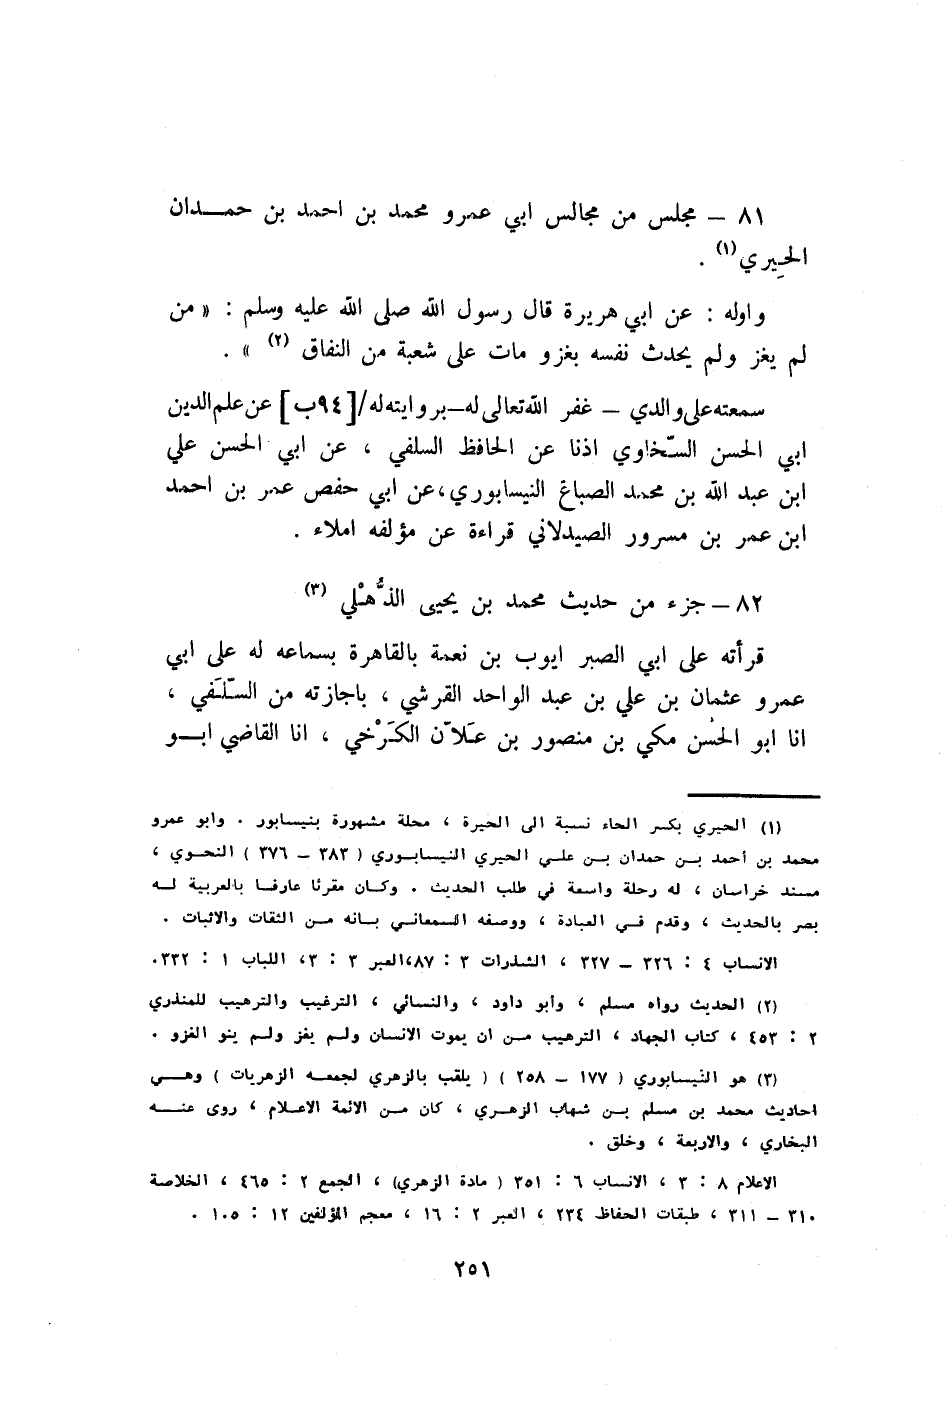 ٨١ – مجلس من مجالس ابي عمرو محمد بن احمد بن حمــدان
الحِيري(١) .
واوله : عن ابي هريرة قال رسول الله صلى الله عليه وسلم : « من
لم يغز ولم يحدث نفسه بغزو مات على شعبة من النفاق (٢) » .
سمعته على والدي – غفر الله تعالى له – بروايته له /[٩٤ب] عن علم الدين
ابي الحسن السّخاوي اذنا عن الحافظ السلفي ، عن ابي الحسن علي
ابن عبد الله بن محمد الصباغ النيسابوري، عن ابي حفص عمر بن احمد
ابن عمر بن مسرور الصيدلاني قراءة عن مؤلفه املاء .
٨٢ – جزء من حديث محمد بن يحيى الذُّهْلي (٣)
قرأته على ابي الصبر ايوب بن نعمة بالقاهرة بسماعه له على ابي
عمرو عثمان بن علي بن عبد الواحد القرشي ، باجازته من السِّلَفي ،
انا ابو الحسن مكي بن منصور بن عَلاّن الكَرْخي ، انا القاضي ابــو
(١) الحيري بكسر الحاء نسبة الى الحيرة ، محلة مشهورة بنيسابور . وأبو عمرو
محمد بن أحمد بــن حمدان بــن علــي الحيري النيسابــوري ( ٣٨٣ – ٣٧٦ ) النحوي ،
مسند خراسان ، له رحلة واسعة في طلب الحديث . وكــان مقرئا عارفــا بالعربية لــه
بصر بالحديث ، وقدم فــي العبادة ، ووصفه السمعانــي بــانه مــن الثقات والاثبات .
الانساب ٤ : ٣٢٦ – ٣٢٧ ، الشذرات ٣ : ٨٧،العبر ٣ : ٣، اللباب ١ : ٣٣٢.
(٢) الحديث رواه مسلم ، وأبو داود ، والنسائي ، الترغيب والترهيب للمنذري
٢ : ٤٥٣ ، كتاب الجهاد ، الترهيب مــن ان يموت الانسان ولــم يغز ولــم ينو الغزو .
(٣) هو النيسابوري ( ١٧٧ – ٢٥٨ ) ( يلقب بالزهري لجمعــه الزهريات ) وهــي
احاديث محمد بن مسلم بــن شهاب الزهــري ، كان مــن الائمة الاعــلام ، روى عنــه
البخاري ، والاربعة ، وخلق .
الاعلام ٨ : ٣ ، الانساب ٦ : ٣٥١ ( مادة الزهري) ، الجمع ٢ : ٤٦٥ ، الخلاصة
٣١٠ – ٣١١ ، طبقات الحفاظ ٢٣٤ ، العبر ٢ : ١٦ ، معجم المؤلفين ١٢ : ١٠٥ .
٢٥١